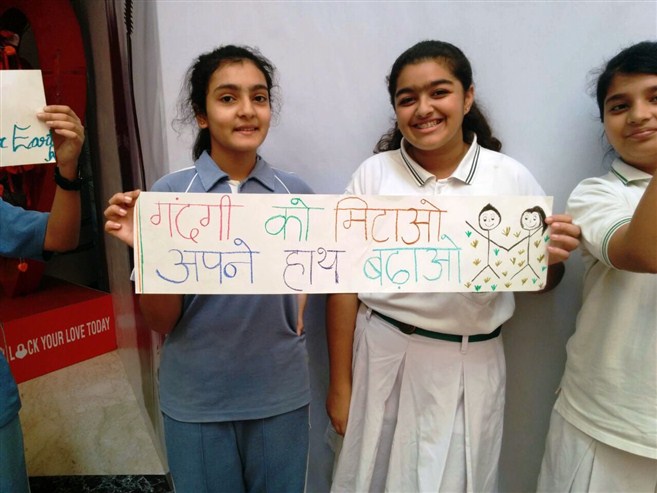 गंदगी को मिटाओ
अपने हाथ बढ़ाओ
LOCK YOUR LOVE TODAY